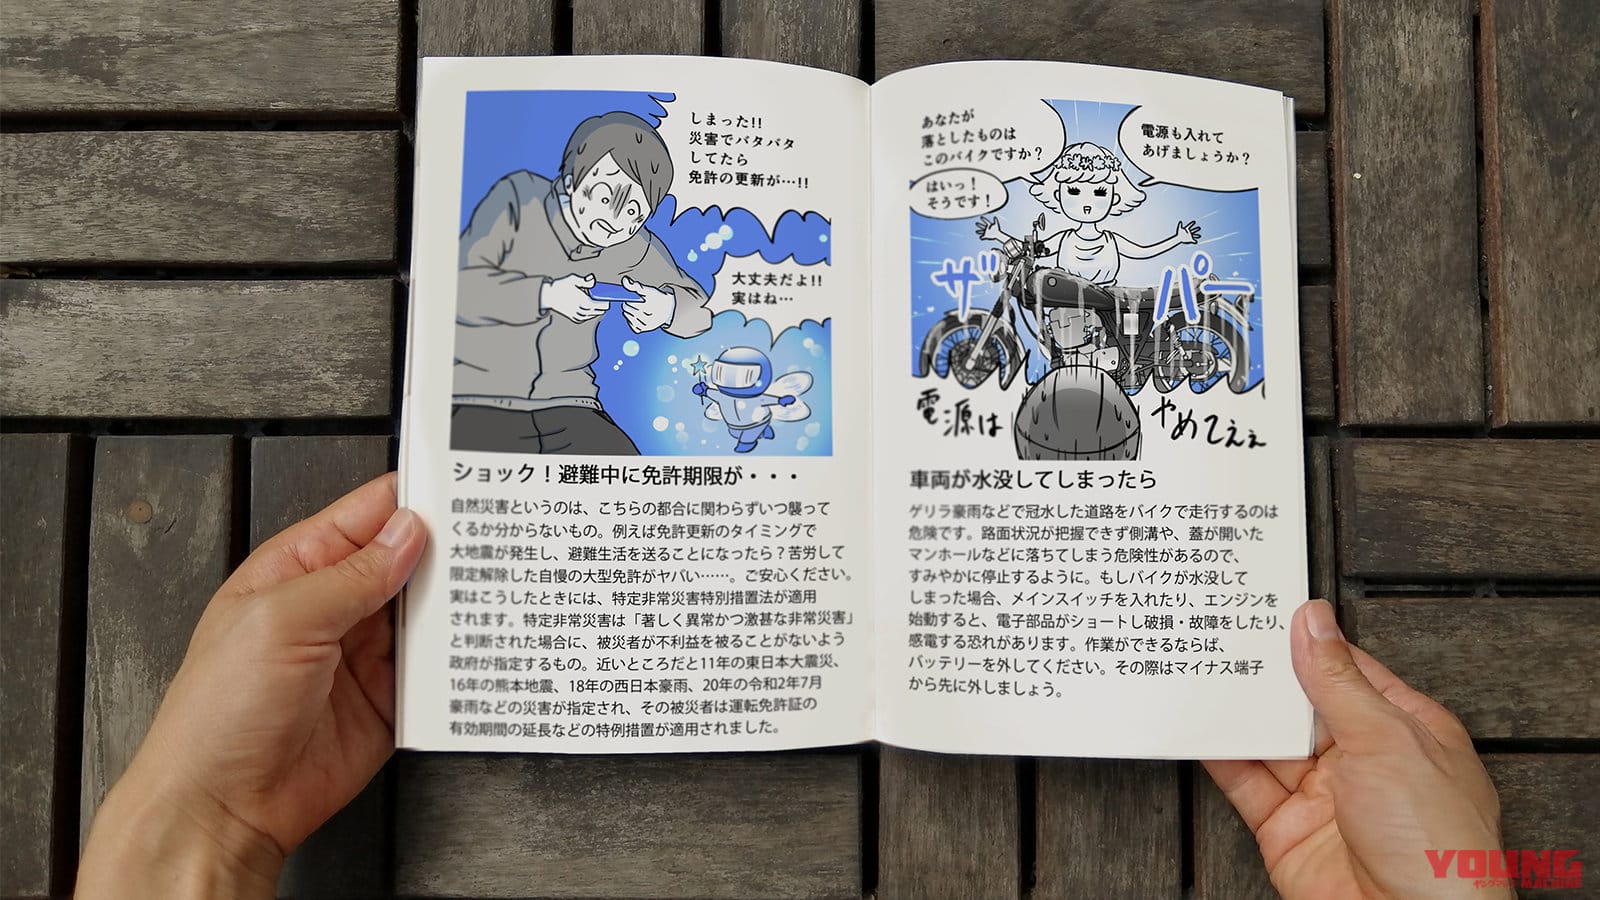 しまった!!
災害でバタバタ
してたら
免許の更新が…!!
大丈夫だよ!!
実はね…
ショック！避難中に免許期限が・・・
自然災害というのは、こちらの都合に関わらずいつ襲って
くるか分からないもの。例えば免許更新のタイミングで
大地震が発生し、避難生活を送ることになったら？苦労して
限定解除した自慢の大型免許がヤバい……。ご安心ください。
実はこうしたときには、特定非常災害特別措置法が適用
されます。特定非常災害は「著しく異常かつ激甚な非常災害」
と判断された場合に、被災者が不利益を被ることがないよう
政府が指定するもの。近いところだと11年の東日本大震災、
16年の熊本地震、18年の西日本豪雨、20年の令和2年7月
豪雨などの災害が指定され、その被災者は運転免許証の
有効期間の延長などの特例措置が適用されました。
あなたが
落としたものは
このバイクですか？
はいっ！
そうです！
電源も入れて
あげましょうか？
ザパー
電源は
やめてぇぇ
車両が水没してしまったら
ゲリラ豪雨などで冠水した道路をバイクで走行するのは
危険です。路面状況が把握できず側溝や、蓋が開いた
マンホールなどに落ちてしまう危険性があるので、
すみやかに停止するように。もしバイクが水没して
しまった場合、メインスイッチを入れたり、エンジンを
始動すると、電子部品がショートし破損・故障をしたり、
感電する恐れがあります。作業ができるならば、
バッテリーを外してください。その際はマイナス端子
から先に外しましょう。
YOUNG
ヤングマシン MACHINE